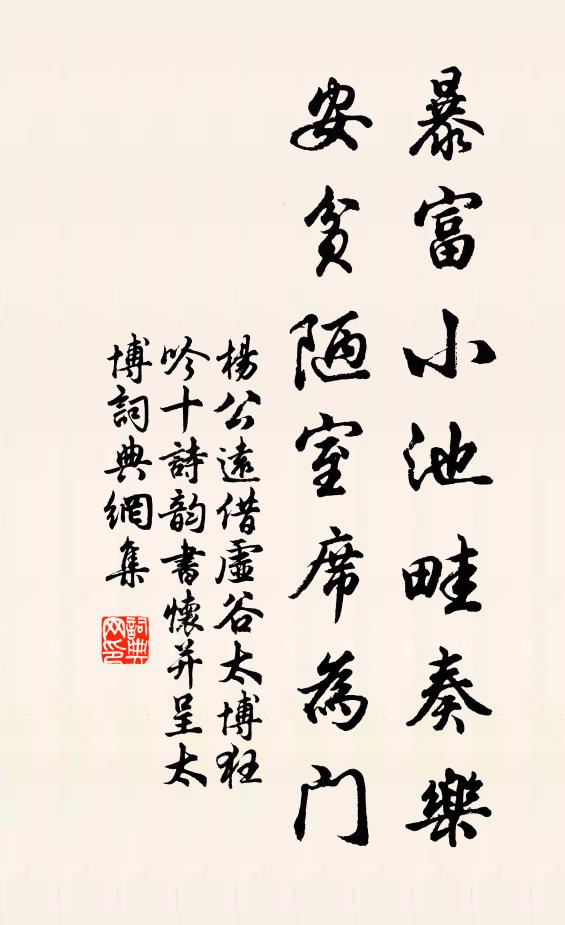 暴富小池畦奏樂
安貧陋室席為門
楊公遠借虛谷太博狂
吟十詩韵書懷并呈太
博詞典網集
詞典
网印